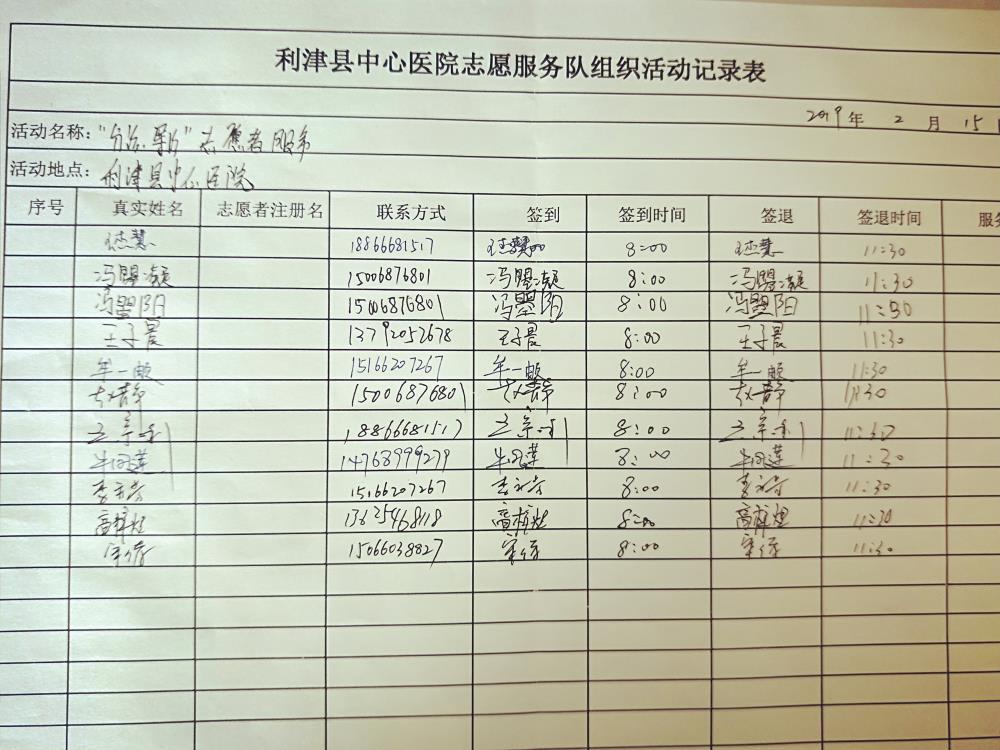 利津县中心医院志愿服务队组织活动记录表
2019 年 2 月 15
活动名称："分诊 导引"志愿者服务
活动地点：利津县中心医院
序号 真实姓名 志愿者注册名 联系方式 签到 签到时间 签退 签退时间 服务
18866681517 8:00 11:30
冯盟凝 15006876801 冯盟凝 8:00 冯盟凝 11:30
冯盟阳 15006876801 冯盟阳 8:00 冯盟阳 11:30
王子晨 13792052678 王子晨 8:00 王子晨 11:30
牟一 15166207267 牟一 8:00 牟一 11:30
赵静 15006876801 赵静 8:00 赵静 11:30
王宗利 18866681517 王宗利 8:00 王宗利 11:30
14768999279 8:00 11:30
李 15166207267 李 8:00 李 11:30
高梓煜 13625468118 高梓煜 8:00 高梓煜 11:30
宋 15066038827 宋 8:00 宋 11:30